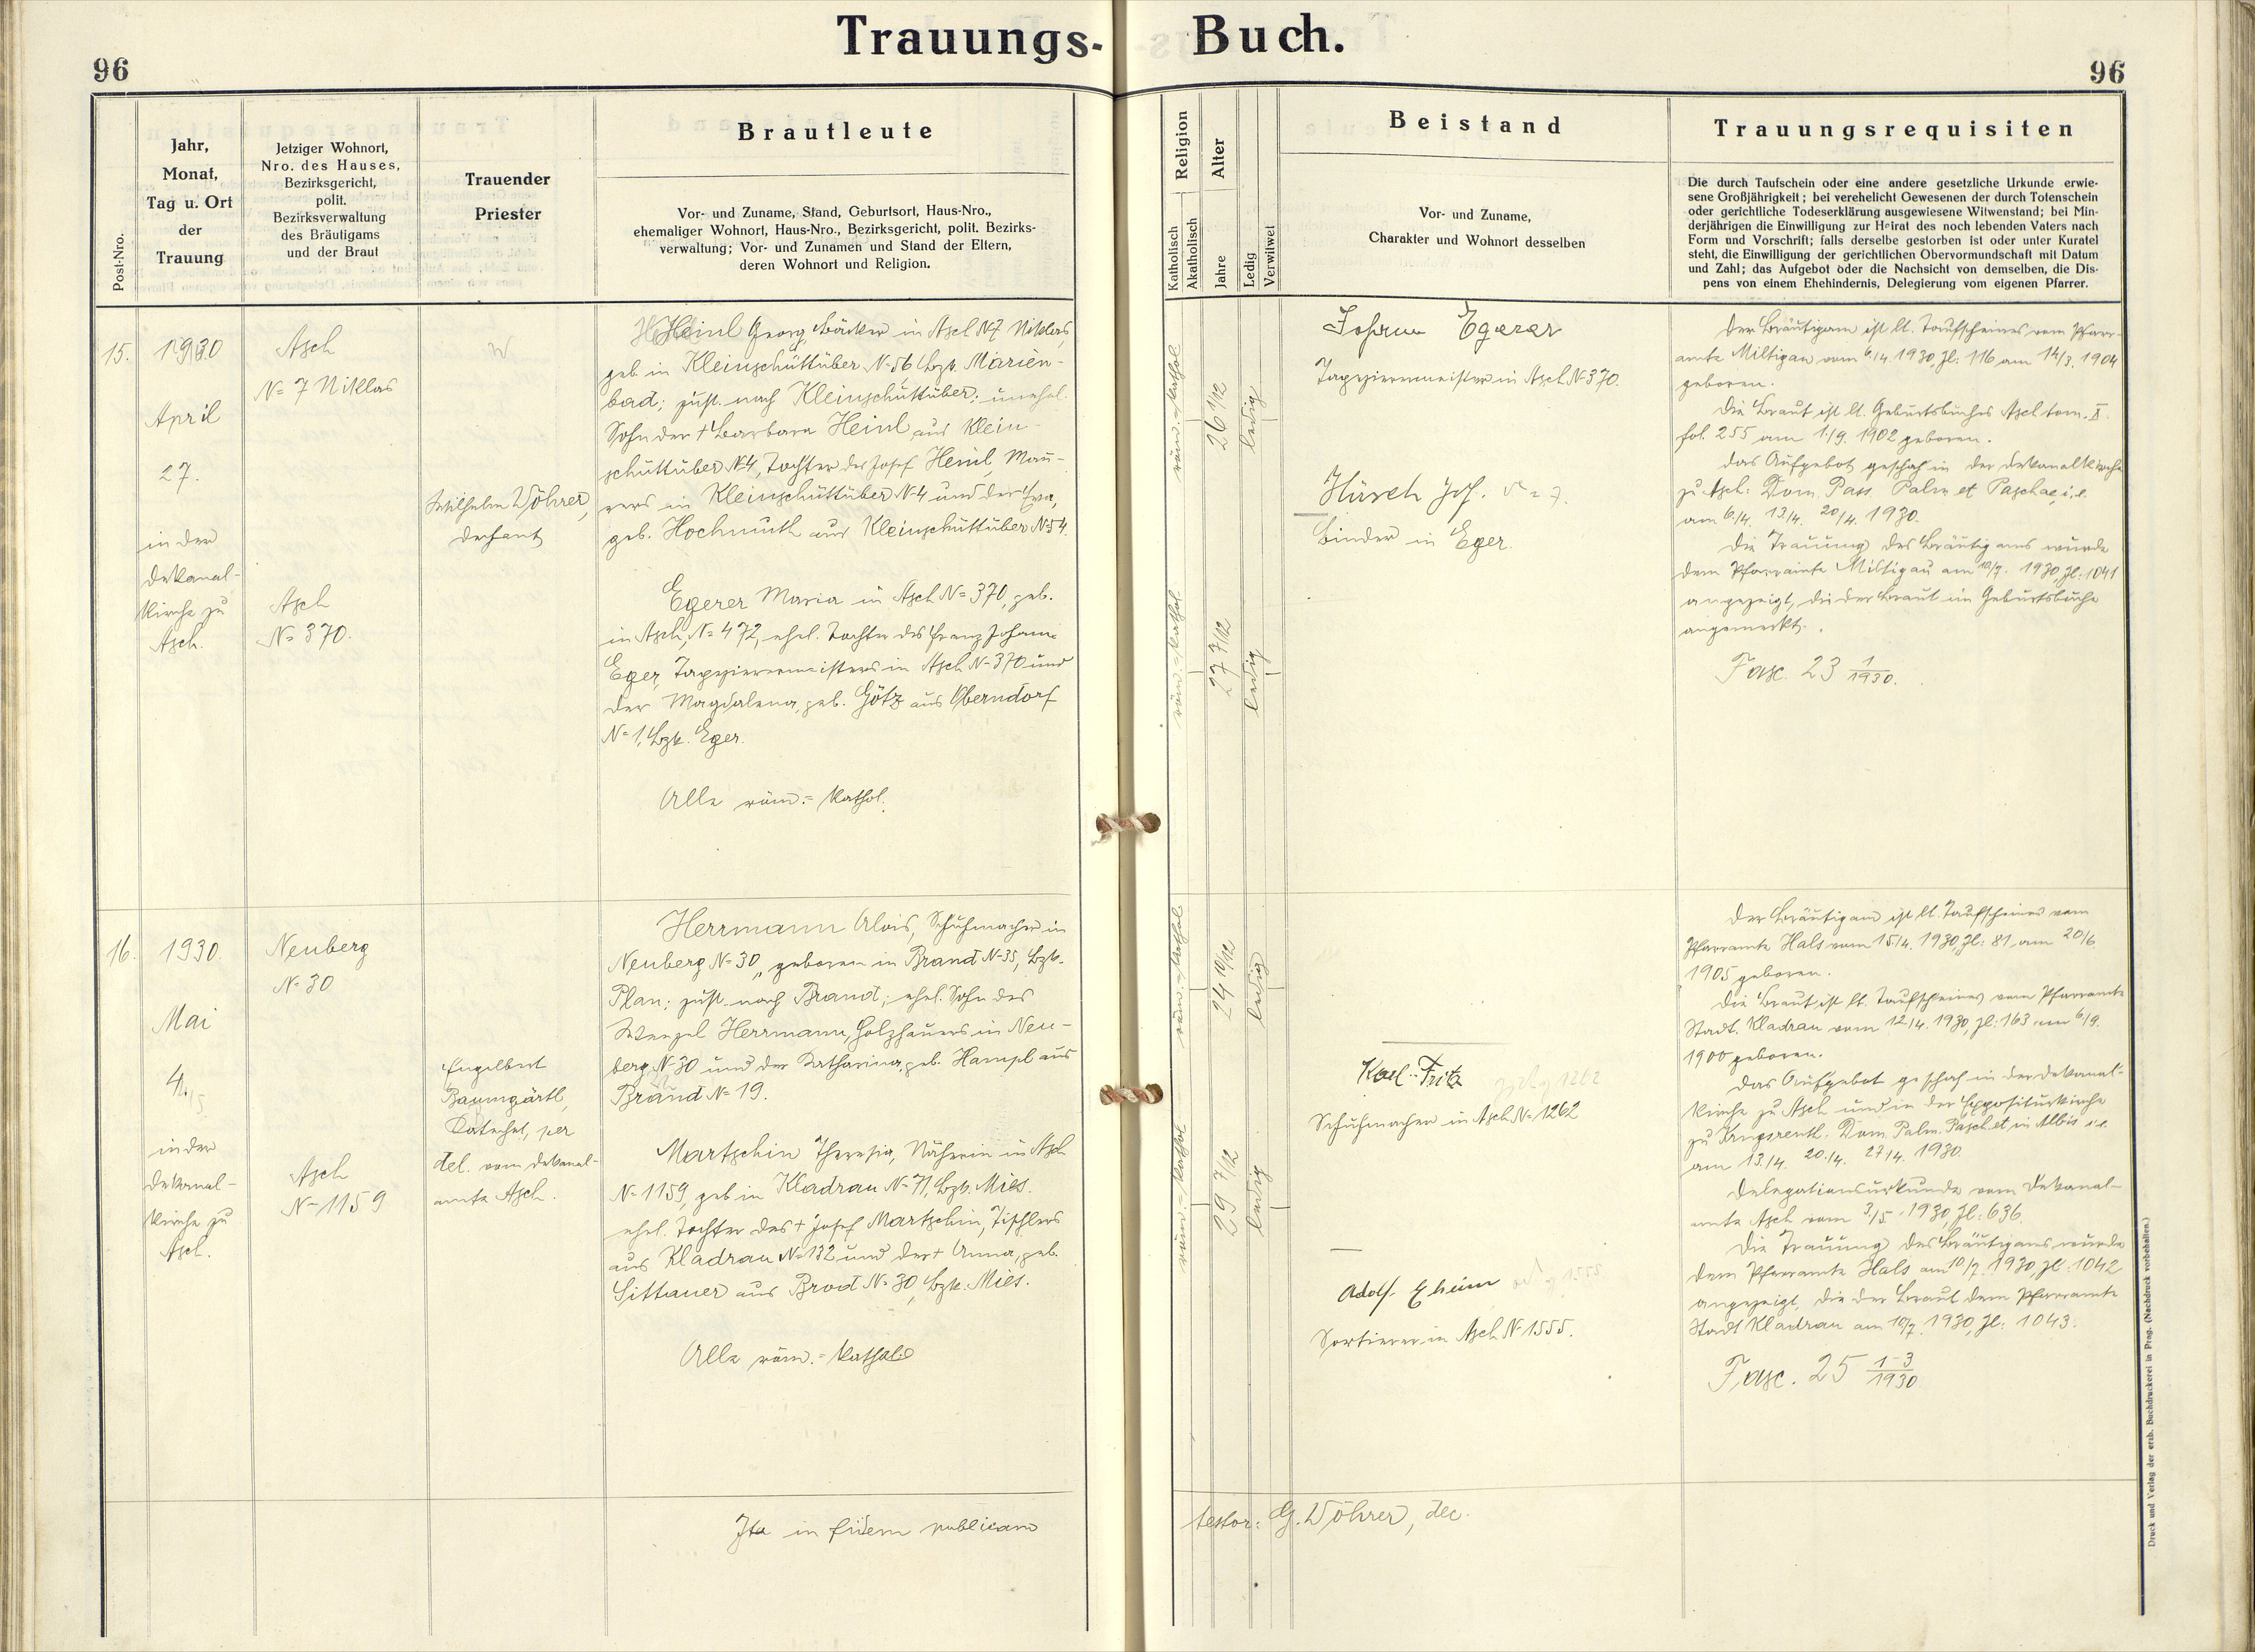 Trauungs-Buch.
96
96
Post-Nro.
Jahr,
Monat,
Tag u. Ort
der
Trauung
Jetziger Wohnort,
Nro. des Hauses,
Bezirksgericht,
polit.
Bezirksverwaltung
des Bräutigams
und der Braut
Trauender
Priester
Brautleute
Vor- und Zuname, Stand, Geburtsort, Haus-Nro.,
ehemaliger Wohnort, Haus-Nro., Bezirksgericht, polit. Bezirks-
verwaltung; Vor- und Zunamen und Stand der Eltern,
deren Wohnort und Religion.
Religion
Katholisch
Akatholisch
Alter
Jahre
Ledig
Verwitwet
Beistand
Vor- und Zuname,
Charakter und Wohnort desselben
Trauungsrequisiten
Die durch Taufschein oder eine andere gesetzliche Urkunde erwie-
sene Großjährigkeit; bei verehelicht Gewesenen der durch Totenschein
oder gerichtliche Todeserklärung ausgewiesene Witwenstand; bei Min-
derjährigen die Einwilligung zur Heirat des noch lebenden Vaters nach
Form und Vorschrift; falls derselbe gestorben ist oder unter Kuratel
steht, die Einwilligung der gerichtlichen Obervormundschaft mit Datum
und Zahl; das Aufgebot oder die Nachsicht von demselben, die Dis-
pens von einem Ehehindernis, Delegierung vom eigenen Pfarrer.
15.
1930
April
27.
in der
Dekanal-
kirche zu
Asch.
Asch
N= 7 Niklas
Asch
N= 370.
Wilhelm Wöhrer,
Dechant
Heinl Georg, Bäcker in Asch N=7 Niklas,
geb. in Kleinschüttüber N=56 Bzk. Marien-
bad; zust. nach Kleinschüttüber; unehel.
Sohn der † Barbara Heinl aus Klein-
schüttüber N=4, Tochter des Josef Heinl, Mau-
rers in Kleinschüttüber N=4 und der Eva,
geb. Hochmuth aus Kleinschüttüber N=54.
Egerer Maria in Asch N=370, geb.
in Asch, N=472, ehel. Tochter des Franz Johann
Eger, Tapezierermeisters in Asch N=370 und
der Magdalena, geb. Götz aus Oberndorf
N=1, Bzk. Eger.
Alle röm.=kathol.
röm.=kathol.
26 1/12
ledig
röm.=kathol.
27 7/12
ledig
Johann Egerer
Tapezierermeister in Asch N=370.
Hüsch Jos.
Binder in Eger.
Der Bräutigam ist lt. Taufscheines vom Pfarr-
amte Miltigau vom 6/4. 1930, Zl: 116 am 14/3. 1904
geboren.
Die Braut ist lt. Geburtsbuches Asch tom. X.
fol. 255 am 1./9. 1902 geboren.
Das Aufgebot geschah in der Dekanalkirche
zu Asch: Dom. Pass. Palm et Paschae, i.e.
am 6./4. 13./4. 20/4. 1930.
Die Trauung des Bräutigams wurde
dem Pfarramte Miltigau am 10/7. 1930, Zl: 1041
angezeigt, die der Braut im Geburtsbuche
angemerkt.
Fasc. 23 1/1930.
16.
1930.
Mai
4.
in der
Dekanal-
kirche zu
Asch.
Neuberg
N=30
Asch
N=1159
Engelbert
Baumgärtl,
Katechet, per
del. vom Dekanal-
amte Asch.
Herrmann Alois, Schuhmacher in
Neuberg N=30, geboren in Brand N=35, Bzk.
Plan; zust. nach Brand; ehel. Sohn des
Wenzel Herrmann, Holzhauers in Neu-
berg N=30 und der Katharina, geb. Hampl aus
Brand N=19.
Martschin Theresia, Näherin in Asch
N=1159, geb. in Kladrau N=71, Bzk. Mies.
ehel. Tochter des † Josef Martschin, Tischlers
aus Kladrau N=132 und der † Anna, geb.
Sittauer aus Brod N=30, Bzk. Mies.
Alle röm.=kathol.
röm.=kathol.
24 10/12
ledig
röm.=kathol.
29 7/12
ledig
Karl Fritz
Schuhmacher in Asch N=1262
Adolf Eheim
Sortierer in Asch N=1555.
Der Bräutigam ist lt. Taufscheines vom
Pfarramte Hals vom 15/4. 1930, Zl: 81, am 20/6.
1905 geboren.
Die Braut ist lt. Taufscheines vom Pfarramte
Stadt Kladrau vom 12./4. 1930, Zl: 163 am 6/9.
1900 geboren.
Das Aufgebot geschah in der Dekanal-
kirche zu Asch und in der Expositurkirche
zu Krugsreuth: Dom. Palm. Pasch. et in Albis i.e.
am 13./4. 20./4. 27/4. 1930.
Delegationsurkunde vom Dekanal-
amte Asch vom 3./5. 1930, Zl: 636.
Die Trauung des Bräutigams wurde
dem Pfarramte Hals am 10/7. 1930, Zl: 1042
angezeigt, die der Braut dem Pfarramte
Stadt Kladrau am 10/7. 1930, Zl: 1043.
Fasc. 25 1-3/1930
Ita in fidem publicam
testor: G. Wöhrer, dec.
Druck und Verlag der erzb. Buchdruckerei in Prag. (Nachdruck vorbehalten.)